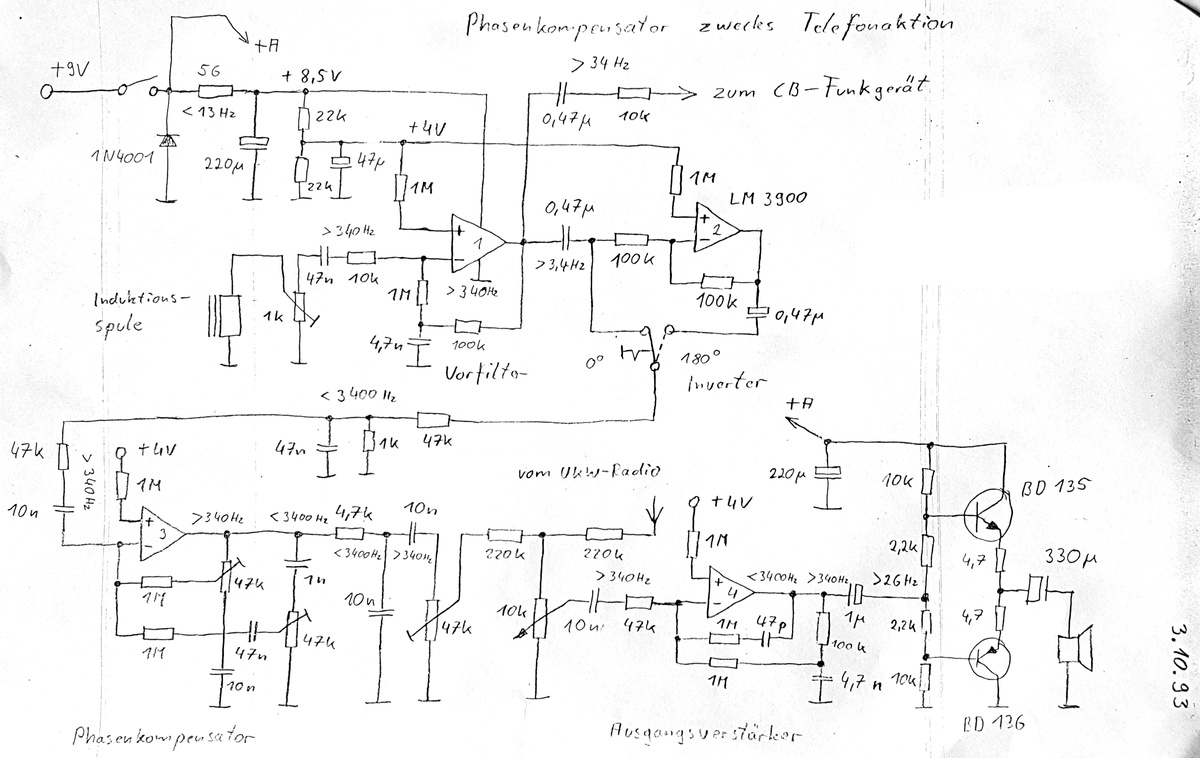 Phasenkompensator zwecks Telefonaktion
+A
+9V
56
+ 8,5V
> 34 Hz
zum CB-Funkgerät
< 13 Hz
22k
0,47µ
10k
1N4001
220µ
+4V
47µ
22k
1M
1M
LM 3900
0,47µ
> 340Hz
+
1
−
+
2
−
47n
10k
> 3,4Hz
100k
Induktions-
1M
> 340Hz
100k
spule
1k
0,47µ
4,7n
100k
0°
180°
Vorfilter
Inverter
< 3400 Hz
+A
47k
47n
1k
47k
+4V
> 340Hz
vom UKW-Radio
220µ
10k
BD 135
1M
10n
+4V
10n
+
3
−
>340Hz
<3400Hz
4,7k
1M
2,2k
<3400Hz
>340Hz
220k
220k
4,7
330µ
>340Hz
+
4
−
<3400Hz
>340Hz
>26Hz
47k
1n
1M
10n
10k
1µ
4,7
47k
10n
47k
1M
47p
2,2k
47k
100k
1M
47n
1M
10n
4,7n
10k
BD 136
Phasenkompensator
Ausgangsverstärker
3.10.93